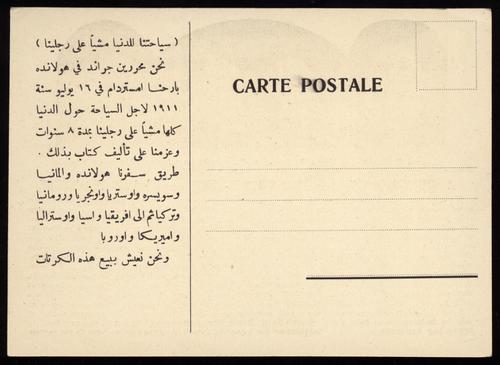 ( سياحتنا للدنيا مشياً على رجلينا )
نحن محررين جرائد في هولانده
بارحنا امستردام في ١٦ يوليو سنة
١٩١١ لاجل السياحة حول الدنيا
كلها مشياً على رجلينا بمدة ٨ سنوات
وعزمنا على تأليف كتاب بذلك .
طريق سفرنا هولانده والمانيا
وسويسره واوستريا واونجريا ورومانيا
وتركيا ثم الى افريقيا واسيا واوستراليا
واميريكا واوروبا
ونحن نعيش ببيع هذه الكرتات
CARTE POSTALE